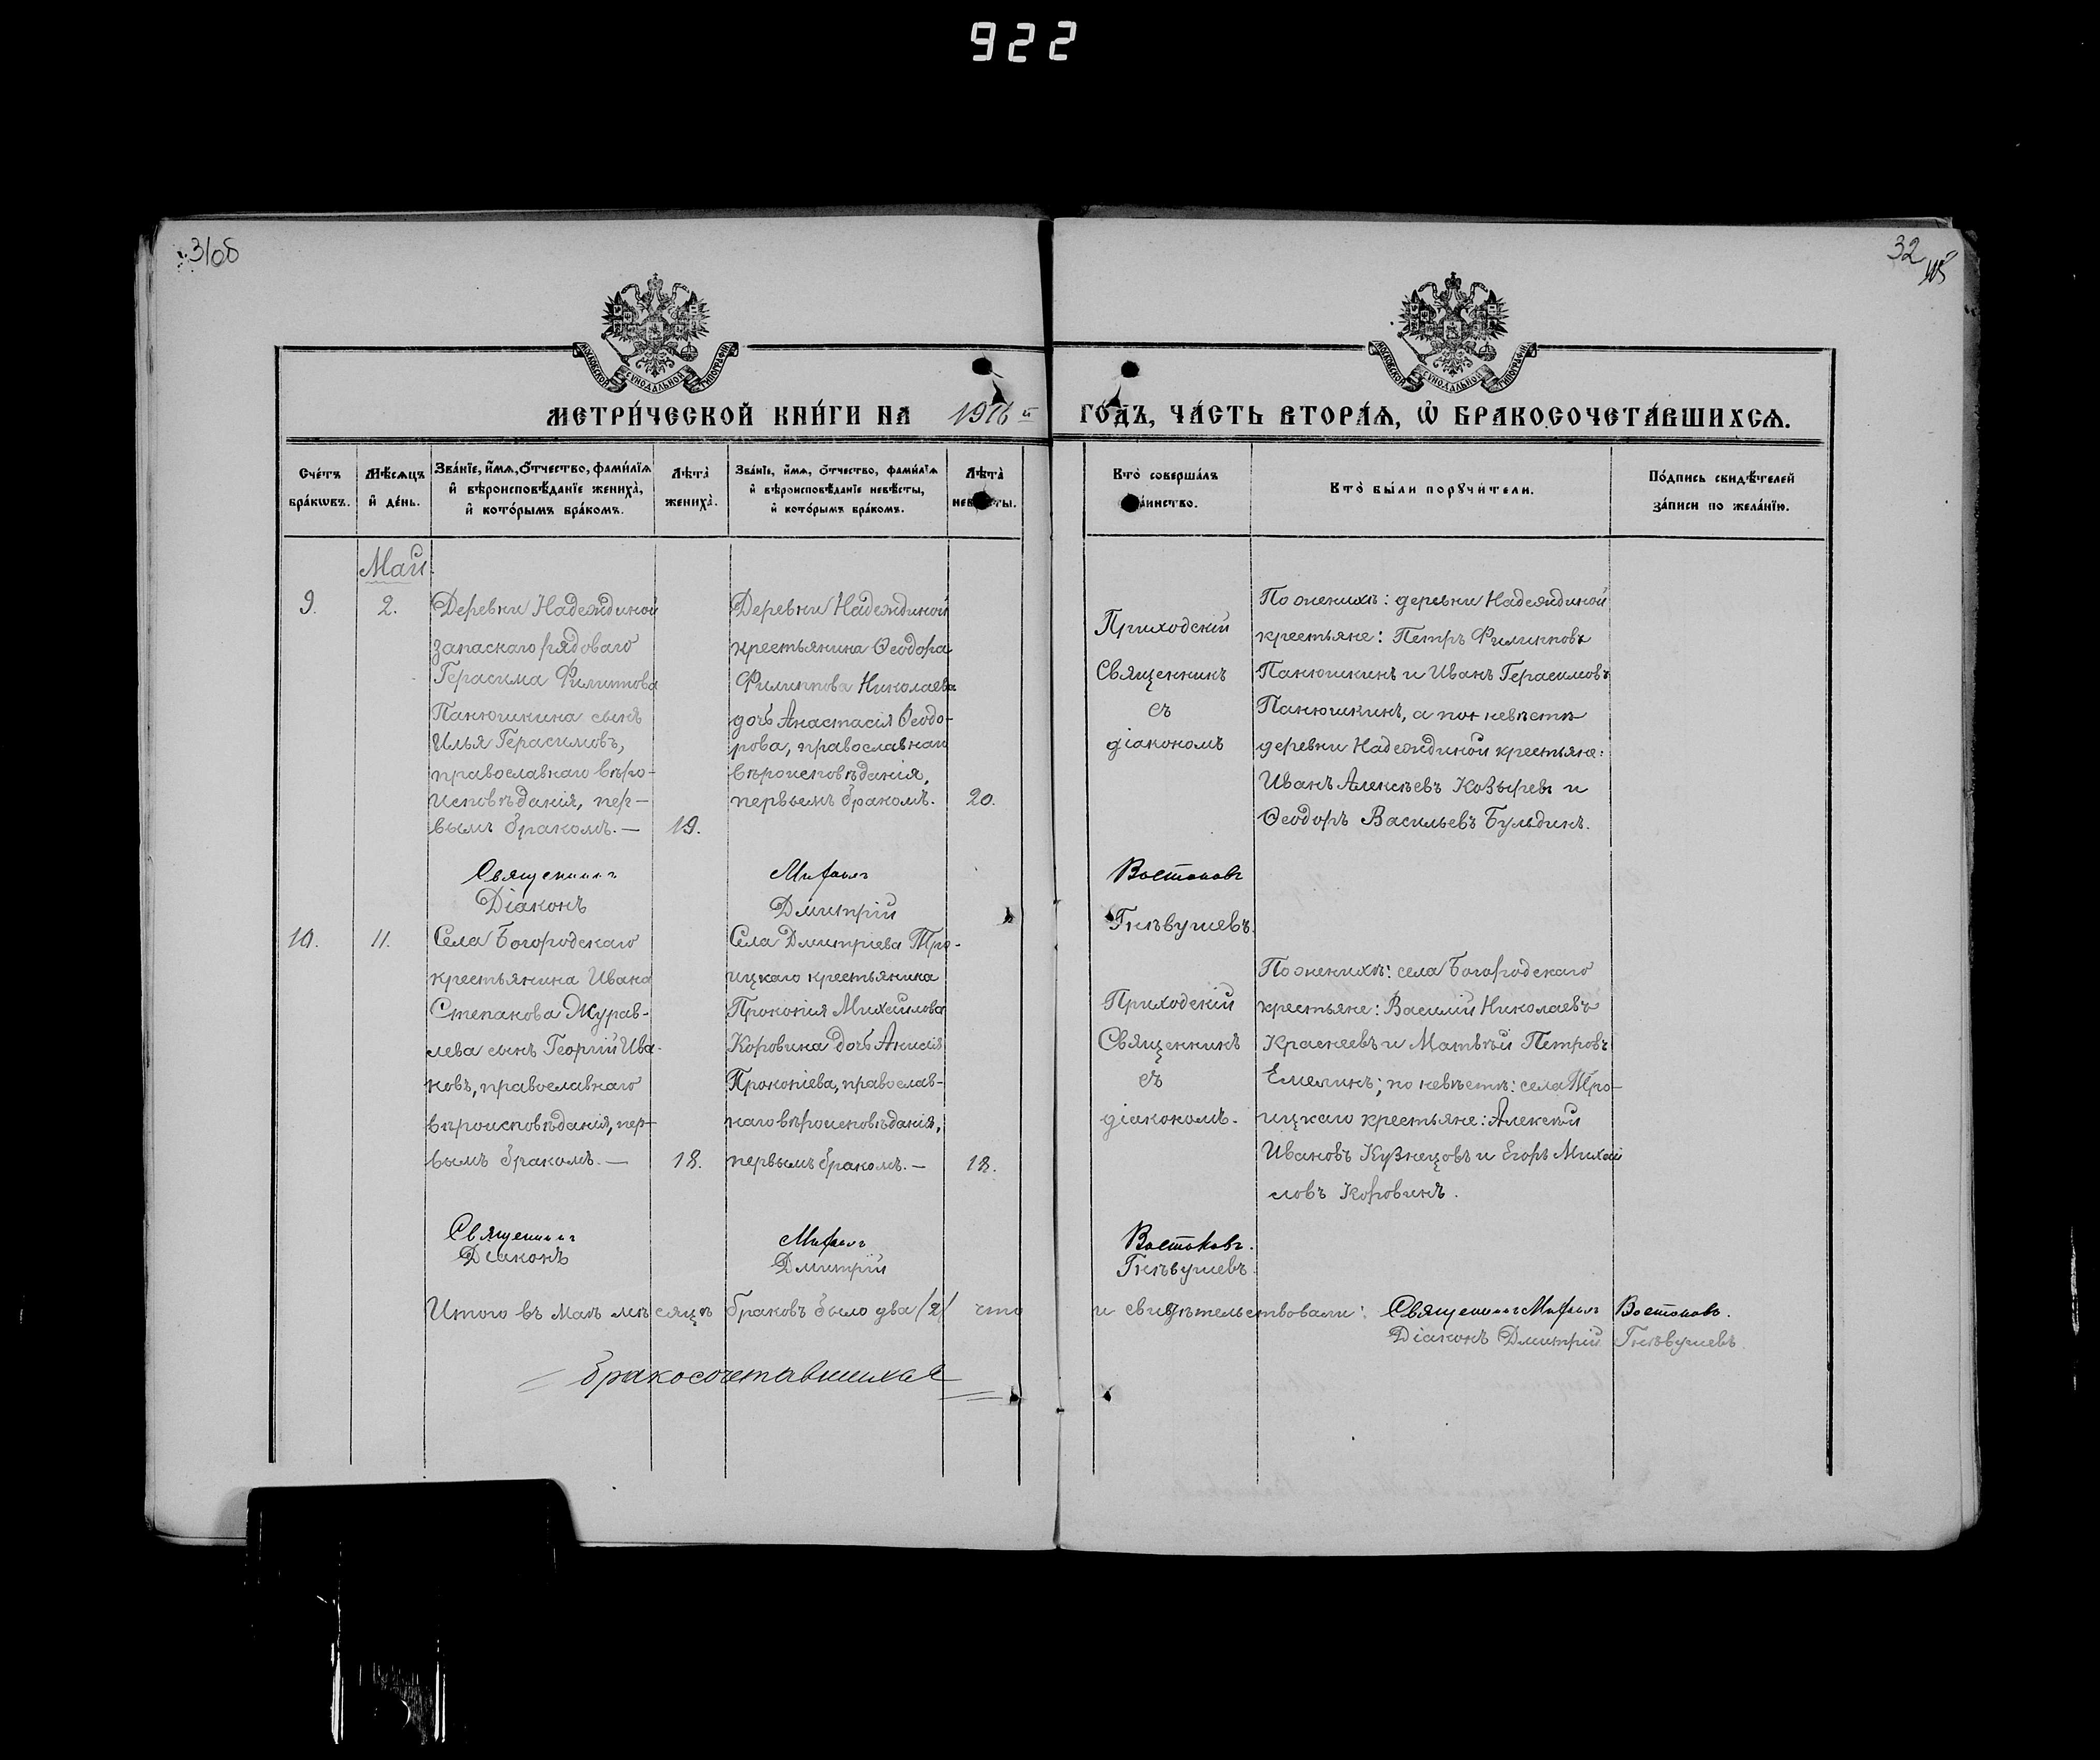 922
31об
32
МОСКОВСКОЙ СѴНОДАЛЬНОЙ ТИПОГРАФІИ
МОСКОВСКОЙ СѴНОДАЛЬНОЙ ТИПОГРАФІИ
МЕТРИ́ЧЕСКОЙ КНИ́ГИ НА 1916й ГО́ДЪ, ЧА́СТЬ ВТОРА́Ѧ, Ѡ҆ БРАКОСОЧЕТА́ВШИХСѦ.
Сче́тъ бра́кѡвъ.
Мѣ́сѧцъ и҆ де́нь.
Зва́нїе, и҆́мѧ, о҆́тчество, фами́лїѧ и҆ вѣроисповѣ́данїе жениха̀, и҆ кото́рымъ бра́комъ.
Лѣ́та жениха̀.
Зва́нїе, и҆́мѧ, о҆́тчество, фами́лїѧ и҆ вѣроисповѣ́данїе невѣ́сты, и҆ кото́рымъ бра́комъ.
Лѣ́та невѣ́сты.
Кто̀ соверша́лъ та́инство.
Кто̀ бы́ли порꙋчи́тели.
По́дпись свидѣ́телей за́писи по жела́нїю.
Май.
9.
2.
Деревни Надеждиной
запаснаго рядоваго
Герасима Филиппова
Панюшкина сынъ
Илья Герасимовъ,
православнаго вѣро-
исповѣданія, пер-
вымъ бракомъ.—
19.
Деревни Надеждиной
крестьянина Ѳеодора
Филиппова Николаева
дочь Анастасія Ѳеодо-
рова, православнаго
вѣроисповѣданія,
первымъ бракомъ.
20.
Приходскій
Священникъ
съ
діакономъ
По женихѣ: деревни Надеждиной
крестьяне: Петръ Филипповъ
Панюшкинъ и Иванъ Герасимовъ
Панюшкинъ, а по невѣстѣ
деревни Надеждиной крестьяне:
Иванъ Алексѣевъ Козыревъ и
Ѳеодоръ Васильевъ Бульдинъ.
Священникъ Михаилъ Востоковъ
Діаконъ Дмитрій Гнѣвушевъ.
10.
11.
Села Богородскаго
крестьянина Ивана
Степанова Журав-
лева сынъ Георгій Ива-
новъ, православнаго
вѣроисповѣданія, пер-
вымъ бракомъ.—
18.
Села Дмитріева Тро-
ицкаго крестьянина
Прокопія Михайлова
Коровина дочь Анисія
Прокопіева, православ-
наго вѣроисповѣданія,
первымъ бракомъ.—
18.
Приходскій
Священникъ
съ
діакономъ.
По женихѣ: села Богородскаго
крестьяне: Василій Николаевъ
Краснеевъ и Матвѣй Петровъ
Емелинъ; по невѣстѣ: села Тро-
ицкаго крестьяне: Алексѣй
Ивановъ Кузнецовъ и Егоръ Михай
ловъ Коровинъ.
Священникъ Михаилъ Востоковъ.
Діаконъ Дмитрій Гнѣвушевъ
Итого въ маѣ мѣсяцѣ браковъ было два /2/ что и свидѣтельствовали: Священникъ Михаилъ Востоковъ.
Діаконъ Дмитрій Гнѣвушевъ
бракосочетавшихся